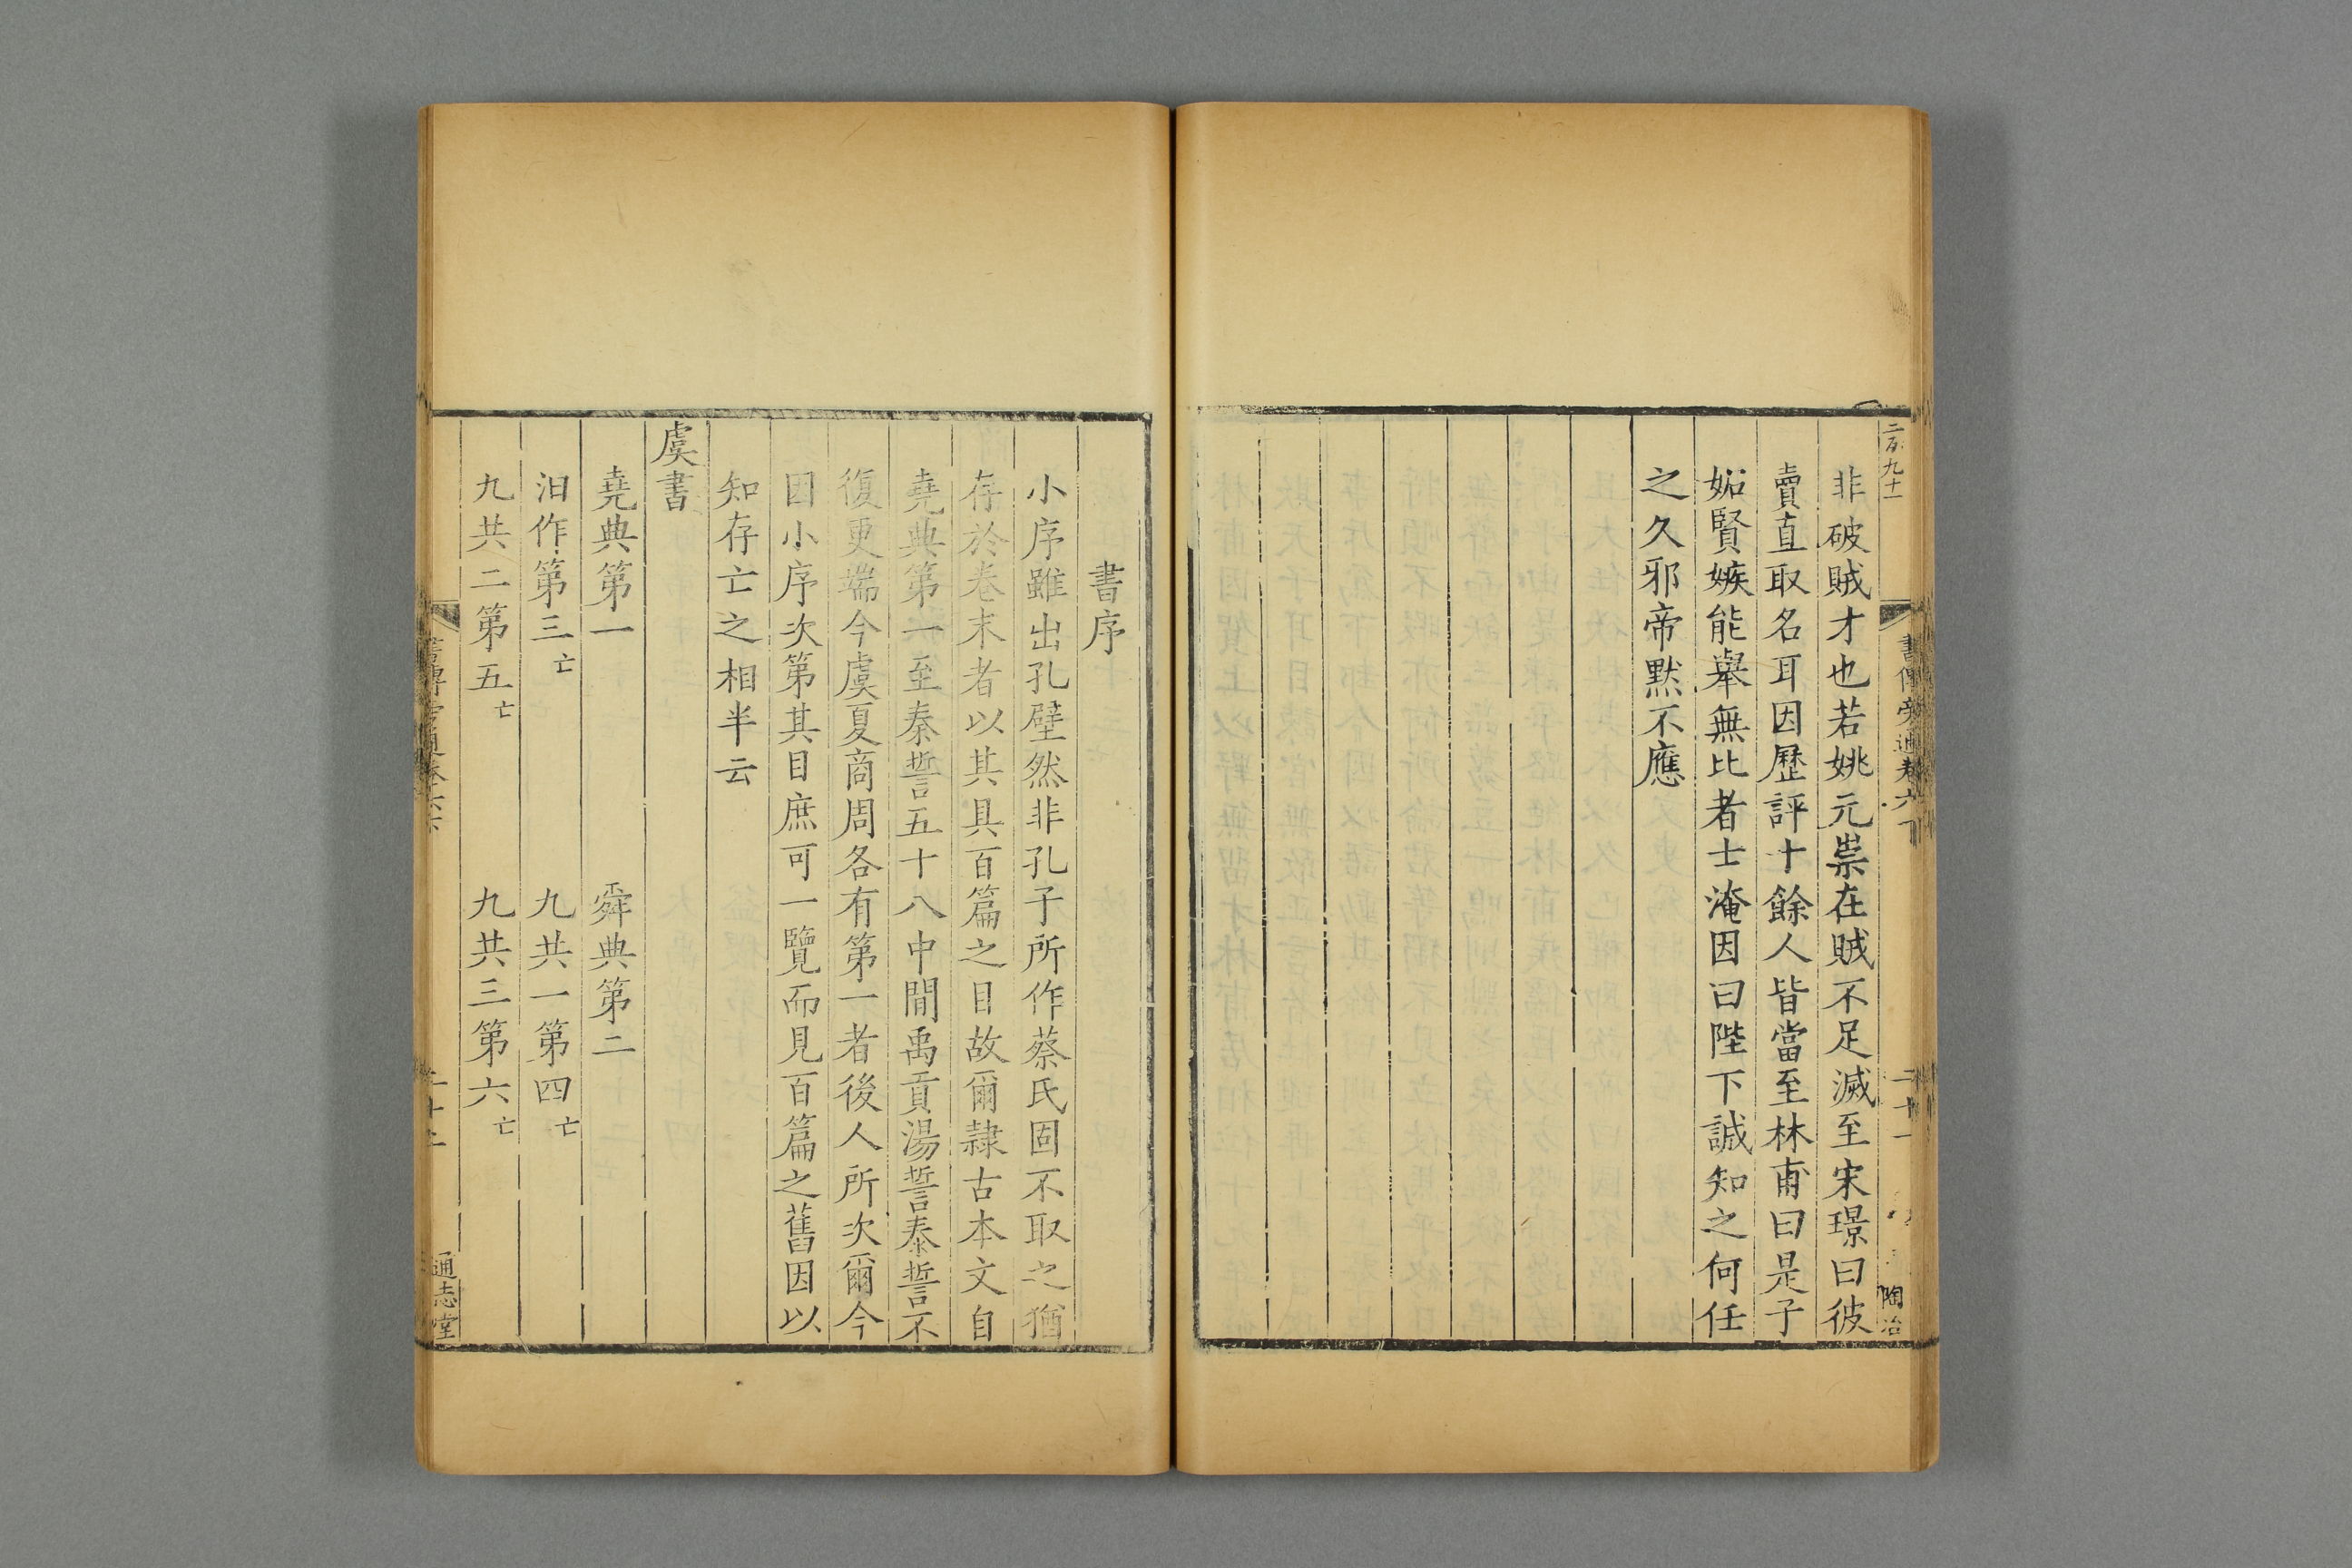 非破賊才也若姚元崇在賊不足滅至宋璟曰彼
賣直取名耳因歷評十餘人皆當至林甫曰是子
妬賢嫉能舉無比者士淹因曰陛下誠知之何任
之久邪帝默不應
書序
小序雖出孔壁然非孔子所作蔡氏固不取之猶
存於卷末者以其具百篇之目故爾隷古本文自
堯典第一至秦誓五十八中間禹貢湯誓泰誓不
復更端今虞夏商周各有第一者後人所次爾今
因小序次第其目庶可一覽而見百篇之舊因以
知存亡之相半云
虞書
堯典第一 舜典第二
汨作第三亡 九共一第四亡
九共二第五亡 九共三第六亡
通志堂
書傳旁通卷六下
二十一
陶冶